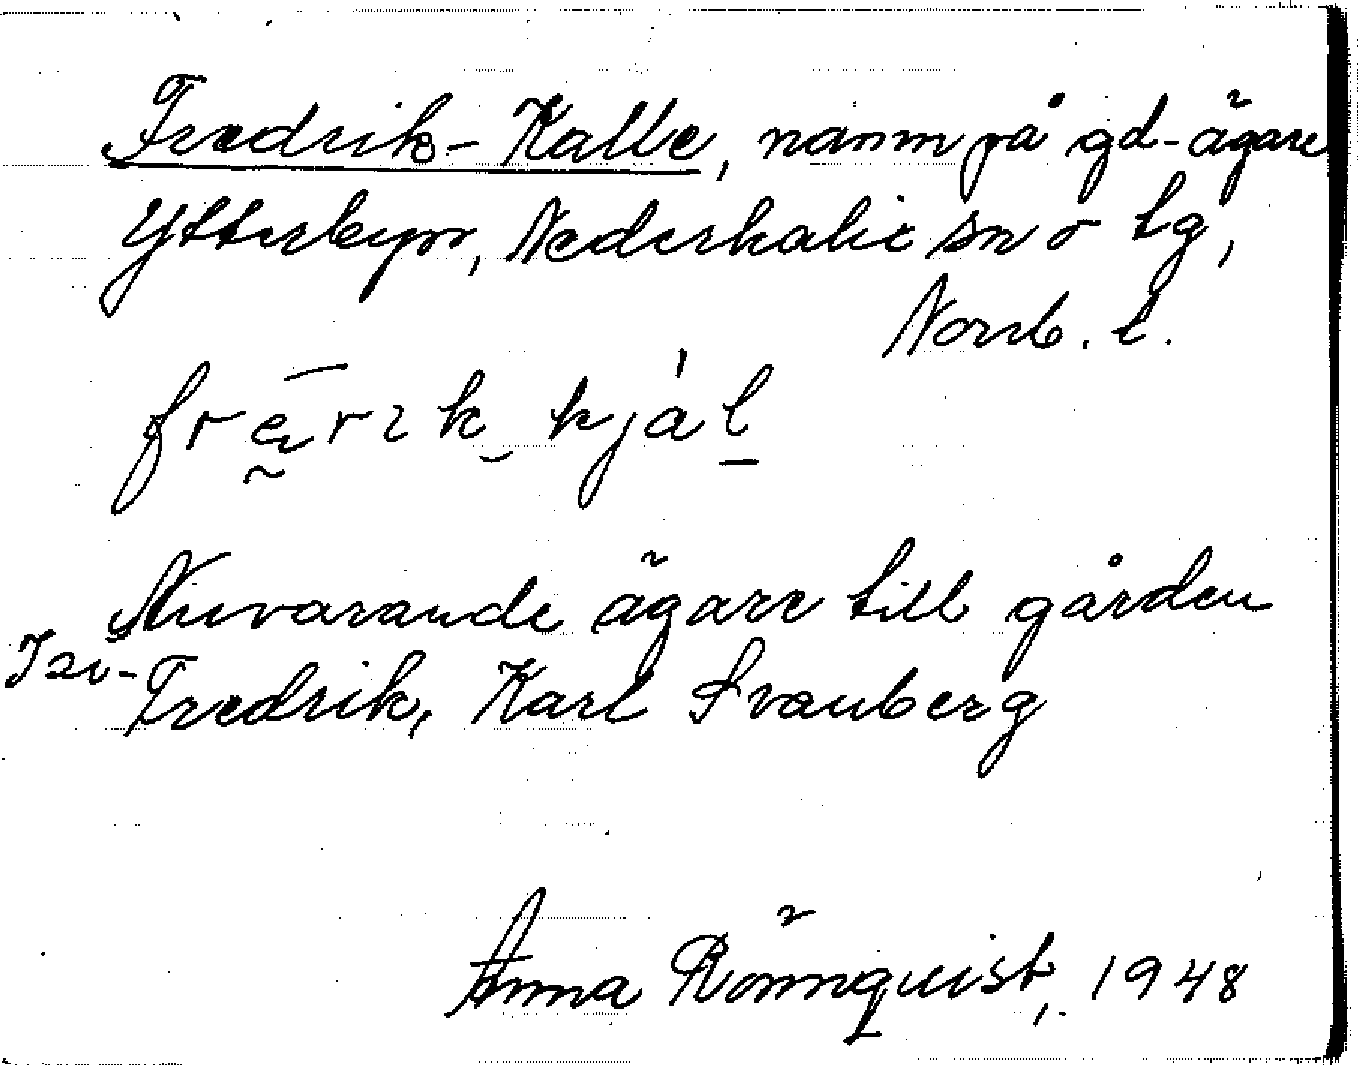 Fredrik-Kalle, namn på gd-ägare
Ytterbyn, Nederkalix sn o tg,
Norrb. l.
Nuvarande ägare till gården
Fredrik, Karl Svanberg
Anna Rönnquist, 1948